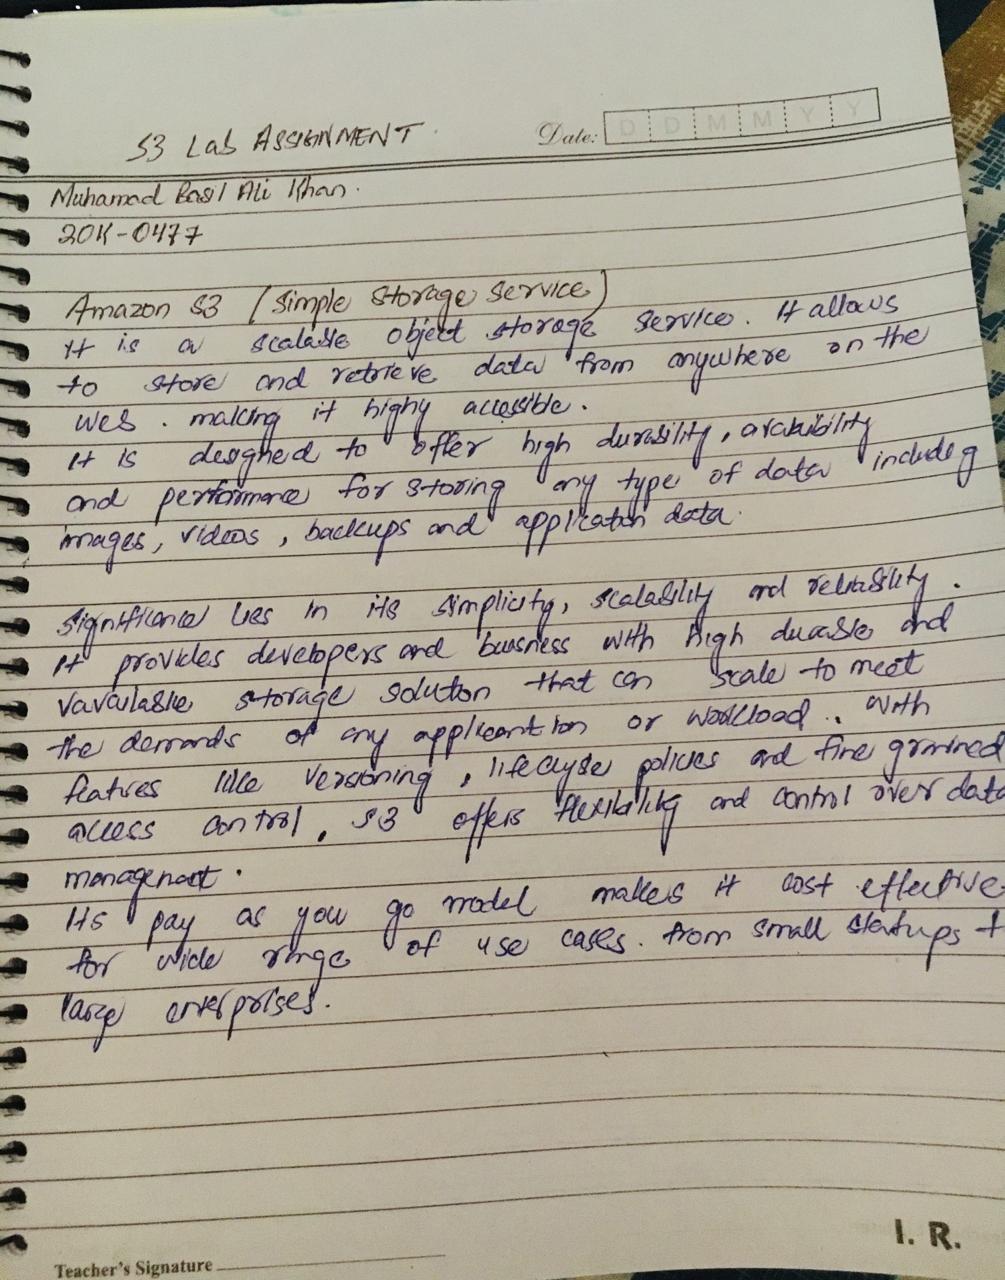 S3 Lab ASSIGNMENT
Date: D D M M Y Y
Muhamad Basil Ali Khan.
20K-0477
Amazon S3 (Simple Storage Service)
It is a scalable object storage service. It allows
to store and retrieve data from anywhere on the
web. making it highy accessible.
It is designed to offer high durability, availability
and performance for storing any type of data includeg
images, videos, backups and applicaton data.
Significance lies in its simplicity, scalability and reliability.
It provides developers and business with high durable and
vavailable storage solution that can scale to meet
the demands of any application or workload. With
featres like versioning, lifecycle policies and fine grained
access control, S3 offers flexibility and control over data
management.
Its pay as you go model makes it cost effective
for wide range of use cases. from small startups t
large enterprises.
I. R.
Teacher's Signature